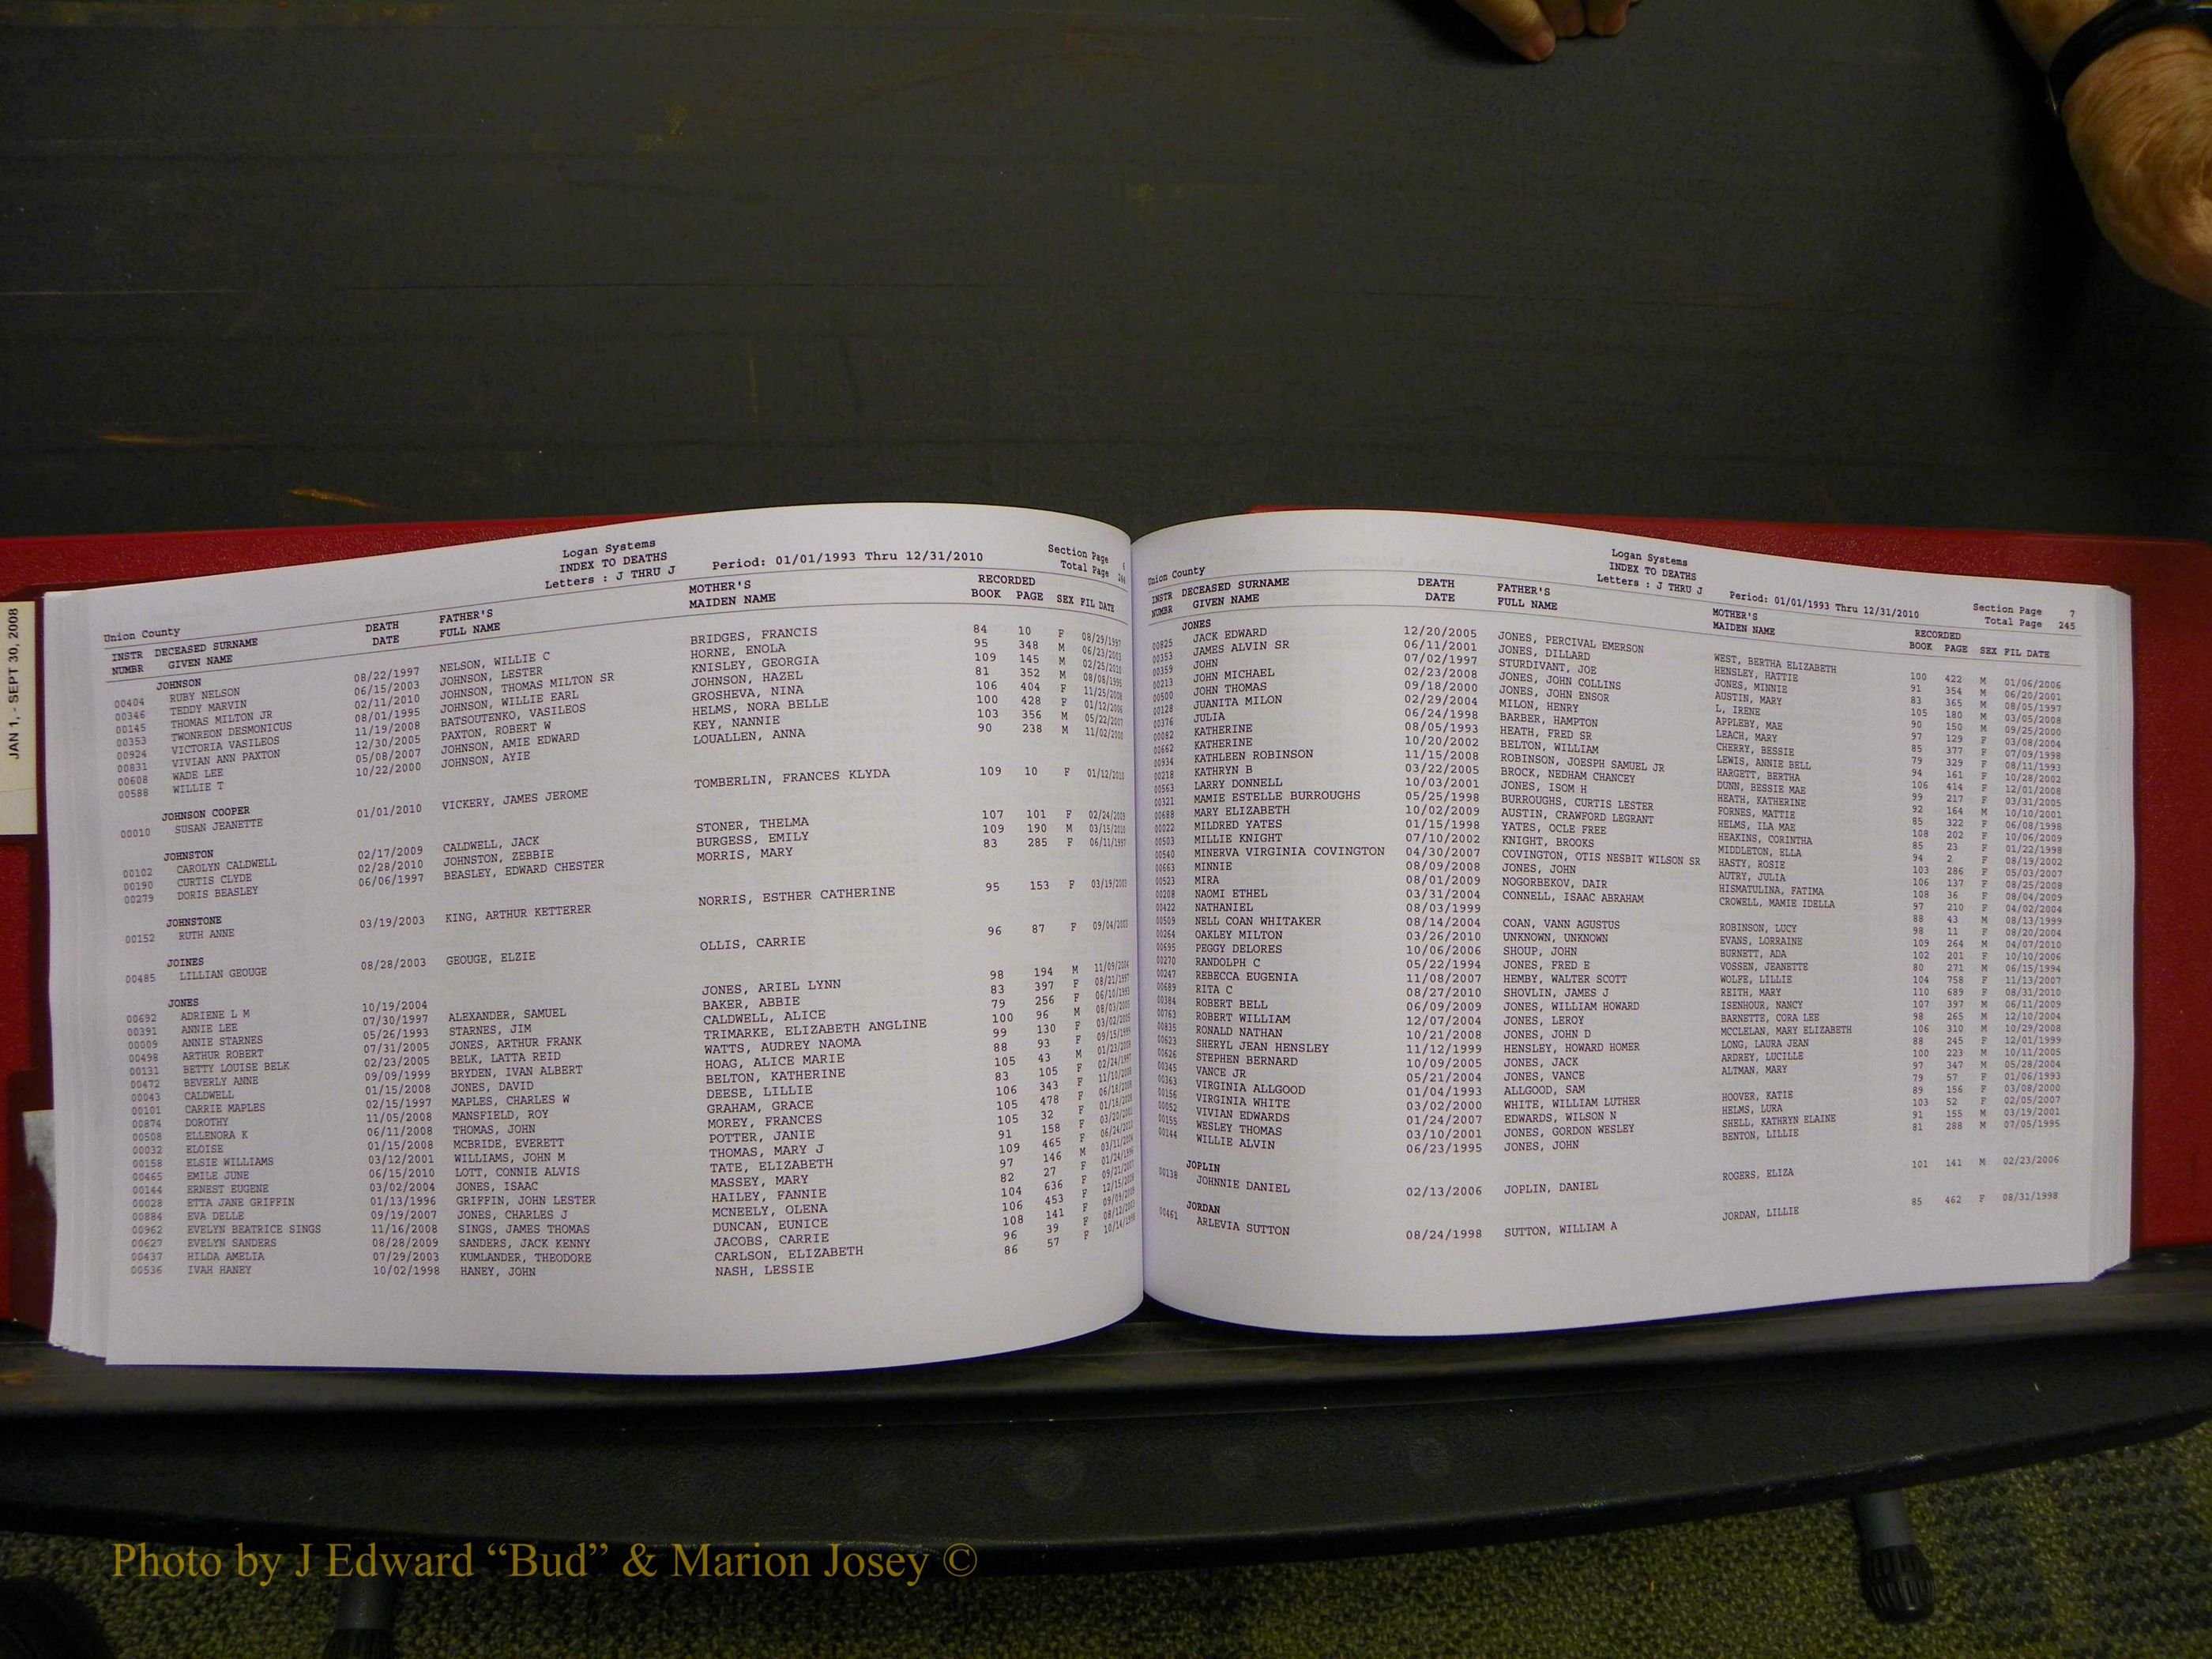 JAN 1, - SEPT 30, 2008
Logan Systems
INDEX TO DEATHS
Union County Letters : J THRU J Period: 01/01/1993 Thru 12/31/2010 Section Page 6
Total Page 244
INSTR DECEASED SURNAME DEATH FATHER'S MOTHER'S RECORDED
NUMBR GIVEN NAME DATE FULL NAME MAIDEN NAME BOOK PAGE SEX FIL DATE
JOHNSON
00404 RUBY NELSON 08/22/1997 NELSON, WILLIE C BRIDGES, FRANCIS 84 10 F 08/29/1997
00346 TEDDY MARVIN 06/15/2003 JOHNSON, LESTER HORNE, ENOLA 95 348 M 06/23/2003
00145 THOMAS MILTON JR 02/11/2010 JOHNSON, THOMAS MILTON SR KNISLEY, GEORGIA 109 145 M 02/25/2010
00353 TWONREON DESMONICUS 08/01/1995 JOHNSON, WILLIE EARL JOHNSON, HAZEL 81 352 M 08/08/1995
00924 VICTORIA VASILEOS 11/19/2008 BATSOUTENKO, VASILEOS GROSHEVA, NINA 106 404 F 11/25/2008
00831 VIVIAN ANN PAXTON 12/30/2005 PAXTON, ROBERT W HELMS, NORA BELLE 100 428 F 01/12/2006
00608 WADE LEE 05/08/2007 JOHNSON, AMIE EDWARD KEY, NANNIE 103 356 M 05/22/2007
00588 WILLIE T 10/22/2000 JOHNSON, AYIE LOUALLEN, ANNA 90 238 M 11/02/2000
JOHNSON COOPER
00010 SUSAN JEANETTE 01/01/2010 VICKERY, JAMES JEROME TOMBERLIN, FRANCES KLYDA 109 10 F 01/12/2010
JOHNSTON
00102 CAROLYN CALDWELL 02/17/2009 CALDWELL, JACK STONER, THELMA 107 101 F 02/24/2009
00190 CURTIS CLYDE 02/28/2010 JOHNSTON, ZEBBIE BURGESS, EMILY 109 190 M 03/15/2010
00279 DORIS BEASLEY 06/06/1997 BEASLEY, EDWARD CHESTER MORRIS, MARY 83 285 F 06/11/1997
JOHNSTONE
00152 RUTH ANNE 03/19/2003 KING, ARTHUR KETTERER NORRIS, ESTHER CATHERINE 95 153 F 03/19/2003
JOINES
00485 LILLIAN GEOUGE 08/28/2003 GEOUGE, ELZIE OLLIS, CARRIE 96 87 F 09/04/2003
JONES
00692 ADRIENE L M 10/19/2004 JONES, ARIEL LYNN 98 194 M 11/09/2004
00391 ANNIE LEE 07/30/1997 ALEXANDER, SAMUEL BAKER, ABBIE 83 397 F 08/21/1997
00009 ANNIE STARNES 05/26/1993 STARNES, JIM CALDWELL, ALICE 79 256 F 06/10/1993
00498 ARTHUR ROBERT 07/31/2005 JONES, ARTHUR FRANK TRIMARKE, ELIZABETH ANGLINE 100 96 M 08/03/2005
00131 BETTY LOUISE BELK 02/23/2005 BELK, LATTA REID WATTS, AUDREY NAOMA 99 130 F 03/02/2005
00472 BEVERLY ANNE 09/09/1999 BRYDEN, IVAN ALBERT HOAG, ALICE MARIE 88 93 F 09/15/1999
00043 CALDWELL 01/15/2008 JONES, DAVID BELTON, KATHERINE 105 43 M 01/23/2008
00101 CARRIE MAPLES 02/15/1997 MAPLES, CHARLES W DEESE, LILLIE 83 105 F 02/24/1997
00874 DOROTHY 11/05/2008 MANSFIELD, ROY GRAHAM, GRACE 106 343 F 11/10/2008
00508 ELLENORA K 06/11/2008 THOMAS, JOHN MOREY, FRANCES 105 478 F 06/18/2008
00032 ELOISE 01/15/2008 MCBRIDE, EVERETT POTTER, JANIE 105 32 F 01/18/2008
00158 ELSIE WILLIAMS 03/12/2001 WILLIAMS, JOHN M THOMAS, MARY J 91 158 F 03/20/2001
00465 EMILE JUNE 06/15/2010 LOTT, CONNIE ALVIS TATE, ELIZABETH 109 465 F 06/24/2010
00144 ERNEST EUGENE 03/02/2004 JONES, ISAAC MASSEY, MARY 97 146 M 03/11/2004
00028 ETTA JANE GRIFFIN 01/13/1996 GRIFFIN, JOHN LESTER HAILEY, FANNIE 82 27 F 01/24/1996
00884 EVA DELLE 09/19/2007 JONES, CHARLES J MCNEELY, OLENA 104 636 F 09/21/2007
00962 EVELYN BEATRICE SINGS 11/16/2008 SINGS, JAMES THOMAS DUNCAN, EUNICE 106 453 F 12/15/2008
00627 EVELYN SANDERS 08/28/2009 SANDERS, JACK KENNY JACOBS, CARRIE 108 141 F 09/09/2009
00437 HILDA AMELIA 07/29/2003 KUMLANDER, THEODORE CARLSON, ELIZABETH 96 39 F 08/12/2003
00536 IVAH HANEY 10/02/1998 HANEY, JOHN NASH, LESSIE 86 57 F 10/14/1998
Logan Systems
INDEX TO DEATHS
Union County Letters : J THRU J Period: 01/01/1993 Thru 12/31/2010 Section Page 7
Total Page 245
INSTR DECEASED SURNAME DEATH FATHER'S MOTHER'S RECORDED
NUMBR GIVEN NAME DATE FULL NAME MAIDEN NAME BOOK PAGE SEX FIL DATE
JONES
00825 JACK EDWARD 12/20/2005 JONES, PERCIVAL EMERSON WEST, BERTHA ELIZABETH 100 422 M 01/06/2006
00353 JAMES ALVIN SR 06/11/2001 JONES, DILLARD HENSLEY, HATTIE 91 354 M 06/20/2001
00359 JOHN 07/02/1997 STURDIVANT, JOE JONES, MINNIE 83 365 M 08/05/1997
00213 JOHN MICHAEL 02/23/2008 JONES, JOHN COLLINS AUSTIN, MARY 105 180 M 03/05/2008
00500 JOHN THOMAS 09/18/2000 JONES, JOHN ENSOR L, IRENE 90 150 M 09/25/2000
00128 JUANITA MILON 02/29/2004 MILON, HENRY APPLEBY, MAE 97 129 F 03/08/2004
00376 JULIA 06/24/1998 BARBER, HAMPTON LEACH, MARY 85 377 F 07/09/1998
00082 KATHERINE 08/05/1993 HEATH, FRED SR CHERRY, BESSIE 79 329 F 08/11/1993
00662 KATHERINE 10/20/2002 BELTON, WILLIAM LEWIS, ANNIE BELL 94 161 F 10/28/2002
00934 KATHLEEN ROBINSON 11/15/2008 ROBINSON, JOESPH SAMUEL JR HARGETT, BERTHA 106 414 F 12/01/2008
00218 KATHRYN B 03/22/2005 BROCK, NEDHAM CHANCEY DUNN, BESSIE MAE 99 217 F 03/31/2005
00563 LARRY DONNELL 10/03/2001 JONES, ISOM H HEATH, KATHERINE 92 164 M 10/10/2001
00321 MAMIE ESTELLE BURROUGHS 05/25/1998 BURROUGHS, CURTIS LESTER FORNES, MATTIE 85 322 F 06/08/1998
00688 MARY ELIZABETH 10/02/2009 AUSTIN, CRAWFORD LEGRANT HELMS, ILA MAE 108 202 F 10/06/2009
00022 MILDRED YATES 01/15/1998 YATES, OCLE FREE HEAKINS, CORINTHA 85 23 F 01/22/1998
00503 MILLIE KNIGHT 07/10/2002 KNIGHT, BROOKS MIDDLETON, ELLA 94 2 F 08/19/2002
00540 MINERVA VIRGINIA COVINGTON 04/30/2007 COVINGTON, OTIS NESBIT WILSON SR HASTY, ROSIE 103 286 F 05/03/2007
00663 MINNIE 08/09/2008 JONES, JOHN AUTRY, JULIA 106 137 F 08/25/2008
00523 MIRA 08/01/2009 NOGORBEKOV, DAIR HISMATULINA, FATIMA 108 36 F 08/04/2009
00208 NAOMI ETHEL 03/31/2004 CONNELL, ISAAC ABRAHAM CROWELL, MAMIE IDELLA 97 210 F 04/02/2004
00422 NATHANIEL 08/03/1999 88 43 M 08/13/1999
00509 NELL COAN WHITAKER 08/14/2004 COAN, VANN AGUSTUS ROBINSON, LUCY 98 11 F 08/20/2004
00264 OAKLEY MILTON 03/26/2010 UNKNOWN, UNKNOWN EVANS, LORRAINE 109 264 M 04/07/2010
00695 PEGGY DELORES 10/06/2006 SHOUP, JOHN BURNETT, ADA 102 201 F 10/10/2006
00270 RANDOLPH C 05/22/1994 JONES, FRED E VOSSEN, JEANETTE 80 271 M 06/15/1994
00247 REBECCA EUGENIA 11/08/2007 HEMBY, WALTER SCOTT WOLFE, LILLIE 104 758 F 11/13/2007
00689 RITA C 08/27/2010 SHOVLIN, JAMES J REITH, MARY 110 689 F 08/31/2010
00384 ROBERT BELL 06/09/2009 JONES, WILLIAM HOWARD ISENHOUR, NANCY 107 397 M 06/11/2009
00763 ROBERT WILLIAM 12/07/2004 JONES, LEROY BARNETTE, CORA LEE 98 265 M 12/10/2004
00835 RONALD NATHAN 10/21/2008 JONES, JOHN D MCCLELAN, MARY ELIZABETH 106 310 M 10/29/2008
00623 SHERYL JEAN HENSLEY 11/12/1999 HENSLEY, HOWARD HOMER LONG, LAURA JEAN 88 245 F 12/01/1999
00626 STEPHEN BERNARD 10/09/2005 JONES, JACK ARDREY, LUCILLE 100 223 M 10/11/2005
00345 VANCE JR 05/21/2004 JONES, VANCE ALTMAN, MARY 97 347 M 05/28/2004
00363 VIRGINIA ALLGOOD 01/04/1993 ALLGOOD, SAM 79 57 F 01/06/1993
00156 VIRGINIA WHITE 03/02/2000 WHITE, WILLIAM LUTHER HOOVER, KATIE 89 156 F 03/08/2000
00052 VIVIAN EDWARDS 01/24/2007 EDWARDS, WILSON N HELMS, LURA 103 52 F 02/05/2007
00155 WESLEY THOMAS 03/10/2001 JONES, GORDON WESLEY SHELL, KATHRYN ELAINE 91 155 M 03/19/2001
00144 WILLIE ALVIN 06/23/1995 JONES, JOHN BENTON, LILLIE 81 288 M 07/05/1995
JOPLIN
00138 JOHNNIE DANIEL 02/13/2006 JOPLIN, DANIEL ROGERS, ELIZA 101 141 M 02/23/2006
JORDAN
00461 ARLEVIA SUTTON 08/24/1998 SUTTON, WILLIAM A JORDAN, LILLIE 85 462 F 08/31/1998
Photo by J Edward “Bud” & Marion Josey ©